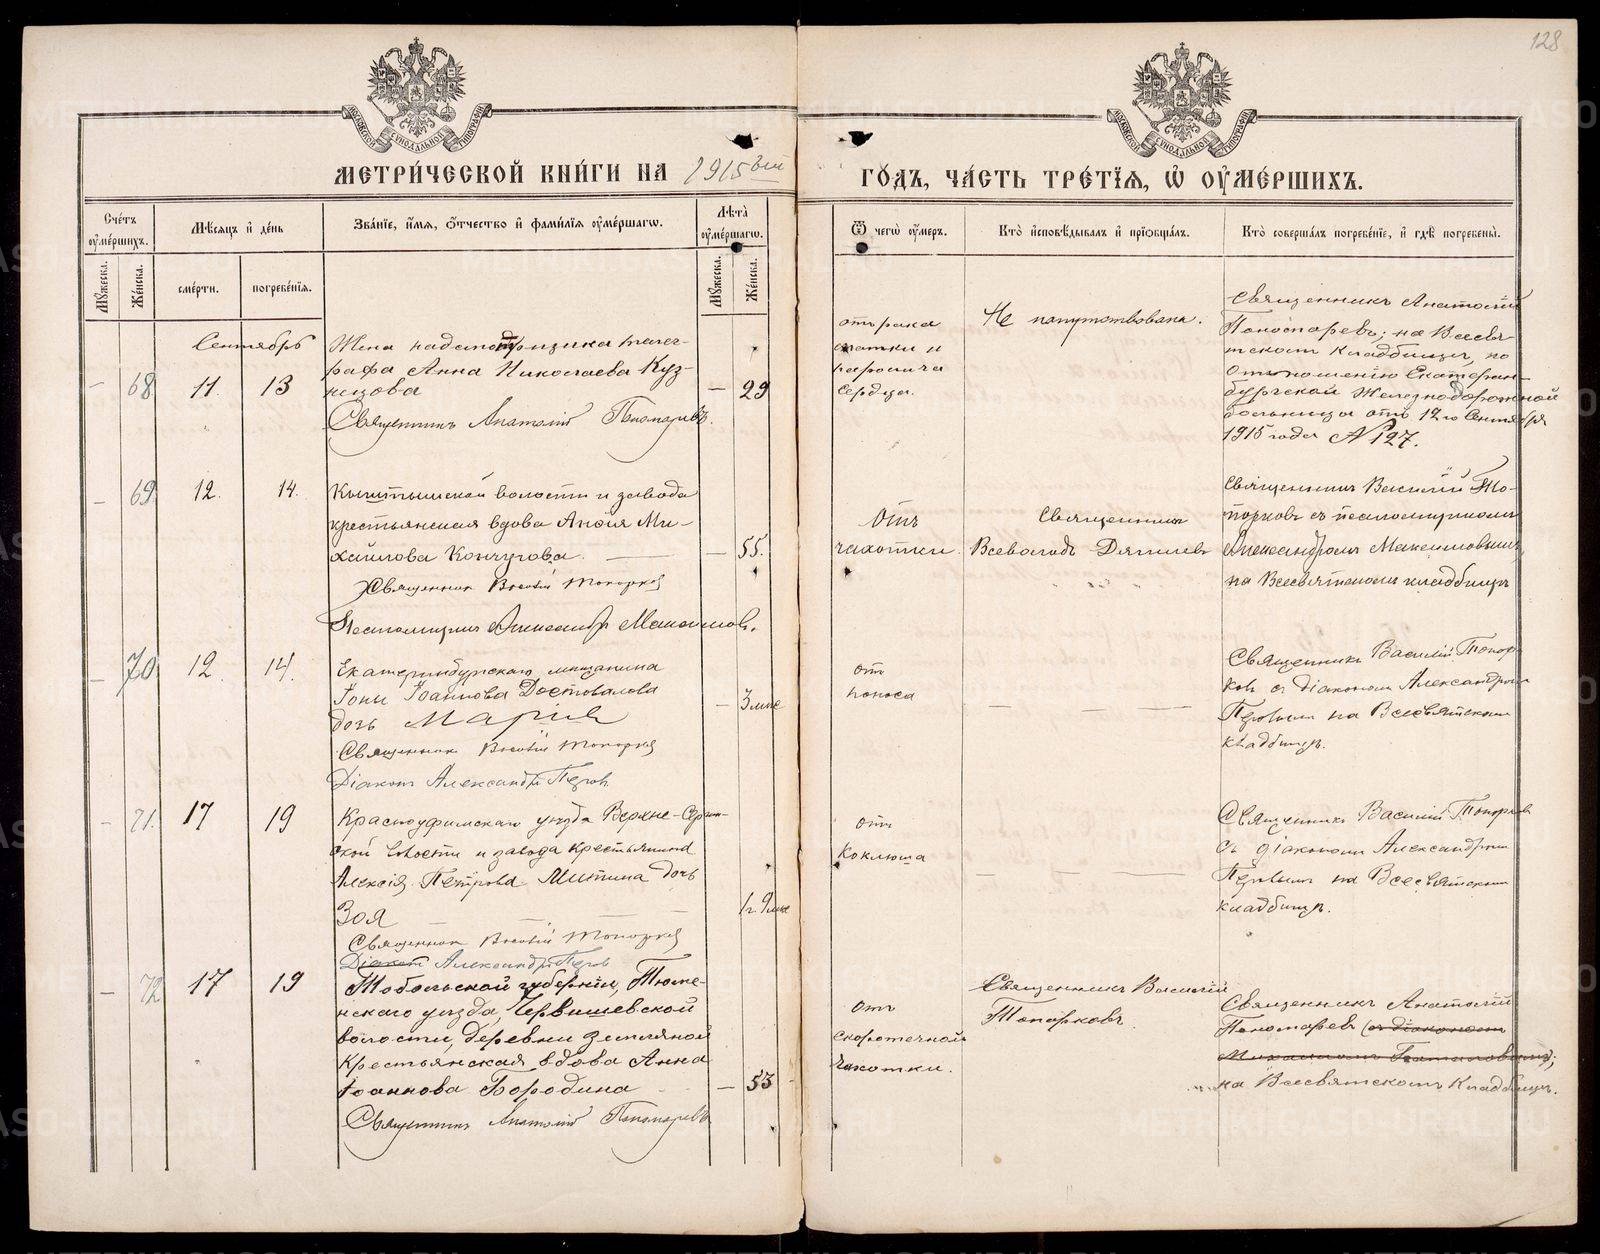 128
МЕТРИ́ЧЕСКОЙ КНИ́ГИ НА 1915ый ГО́ДЪ, ЧА́СТЬ ТРЕ́ТІѦ, Ѡ҆ ОУ҆МЕ́РШИХЪ.
Сче́тъ оу҆ме́ршихъ.
Мѣсѧцъ и҆ де́нь
Зва́нїе, и҆́мѧ, ѻ҆́тчество и҆ фамі́лїѧ оу҆ме́ршагѡ.
Лѣта̀ оу҆ме́ршагѡ.
Ѿ чегѡ̀ оу҆́меръ.
Кто̀ и҆сповѣ́дывалъ и҆ прїѡбща́лъ.
Кто̀ соверша́лъ погребе́нїе, и҆ гдѣ̀ погребены̀.
Мꙋ́жеска.
Же́нска.
сме́рти.
погребе́нїѧ.
Мꙋ́жеска.
Же́нска.
Сентябрь
— 68. 11. 13
Жена надсмотрщика телег-
рафа Анна Николаева Куз-
нецова
Священникъ Анатолій Пономаревъ.
— 29
отъ рака
матки и
паралича
сердца.
Не напутствована.
Священникъ Анатолій
Пономаревъ; на Всесвят-
скомъ кладбищѣ, по
отношенію Екатерин-
бургской Железнодорожной
больницы отъ 12го Сентября
1915 года № 127.
— 69. 12. 14.
Кыштымской волости и завода
крестьянская вдова Ми-
хаилова
Священникъ Василій Топорковъ
Псаломщикъ Александръ Максимовъ.
— 55.
Отъ
чахотки.
Священникъ
Всеволодъ
Священникъ Василій То-
порковъ съ псаломщикомъ
Александромъ Максимовымъ
на Всесвятскомъ кладбищѣ
— 70. 12. 14.
Екатеринбургскаго мещанина
Іоны Іоаннова Достовалова
дочь Марія
Священникъ Василій Топорковъ
Діаконъ Александръ Перовъ
— 3 мѣс
отъ
поноса
— — —
Священникъ Василій Топор-
ковъ съ діакономъ Александромъ
Перовымъ на Всесвятскомъ
кладбищѣ.
— 71. 17 19
Красноуфимскаго уѣзда Верхне-Сергин-
ской волости и завода крестьянина
Алексія Петрова Митина дочь
Зоя
Священникъ Василій Топорковъ
Діаконъ Александръ Перовъ
1 г. 9 мѣс
отъ
Коклюша
— —
Священникъ Василій Топорковъ
съ діакономъ Александромъ
Перовымъ на Всесвятскомъ
кладбищѣ.
— 72 17 19
Тобольской губерніи, Тюме-
нскаго уѣзда, Червишевской
волости, деревни Земляной
Крестьянская вдова Анна
Іоаннова Бородина
Священникъ Анатолій Пономаревъ
— 53
Отъ
скоротечной
чахотки.
Священникъ Василій
Топорковъ.
Священникъ Анатолій
Пономаревъ (съ діакономъ
на Всесвятскомъ Кладбищѣ.
METRIKI.GASO-URAL.RU